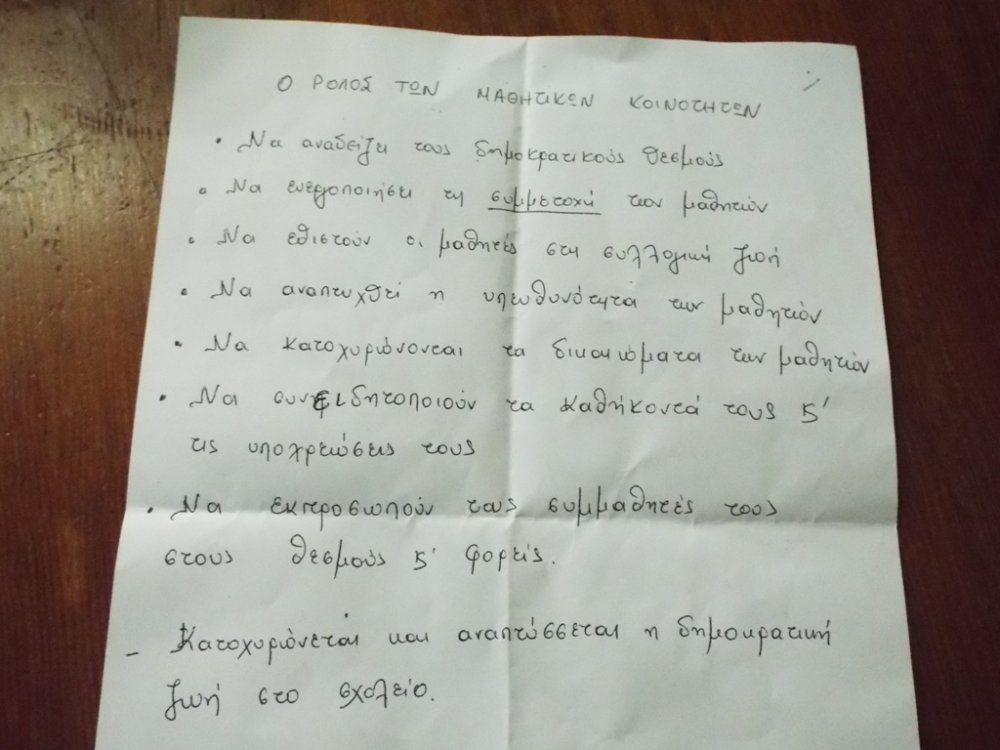 Ο ΡΟΛΟΣ ΤΩΝ ΜΑΘΗΤΙΚΩΝ ΚΟΙΝΟΤΗΤΩΝ
• Να αναδείξει τους δημοκρατικούς θεσμούς
• Να ενεργοποιήσει τη συμμετοχή των μαθητών
• Να εθιστούν οι μαθητές στη συλλογική ζωή
• Να αναπτυχθεί η υπευθυνότητα των μαθητών
• Να κατοχυρώνονται τα δικαιώματα των μαθητών
• Να συνειδητοποιούν τα καθήκοντά τους ϛ'
τις υποχρεώσεις τους
• Να εκπροσωπούν τους συμμαθητές τους
στους θεσμούς ϛ' φορείς.
- Κατοχυρώνεται και αναπτύσσεται η δημοκρατική
ζωή στο σχολείο.